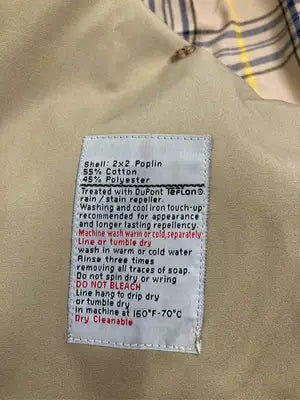 Shell: 2x2 Poplin
55% Cotton
45% Polyester
Treated with DuPont TEFLON®
rain / stain repeller.
Washing and cool iron touch-up
recommended for appearance
and longer lasting repellency.
Machine wash warm or cold, separately
Line or tumble dry
wash in warm or cold water
Rinse three times
removing all traces of soap.
Do not spin dry or wring
DO NOT BLEACH
Line hang to drip dry
or tumble dry
in machine at 160°F-70°C
Dry Cleanable